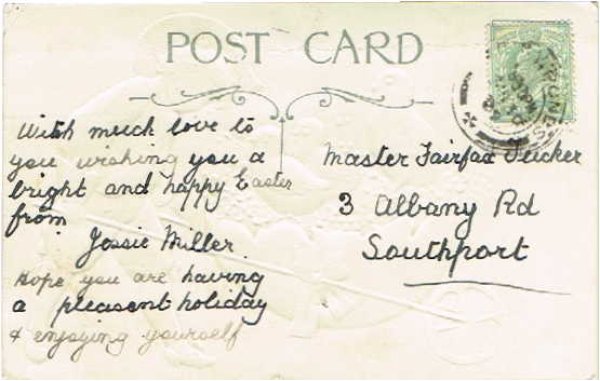 POST CARD
With much love to
you wishing you a
bright and happy Easter
from
Jessie Miller.
Hope you are having
a pleasent holiday
& enjoying yourself
Master Fairfax Tucker
3 Albany Rd
Southport